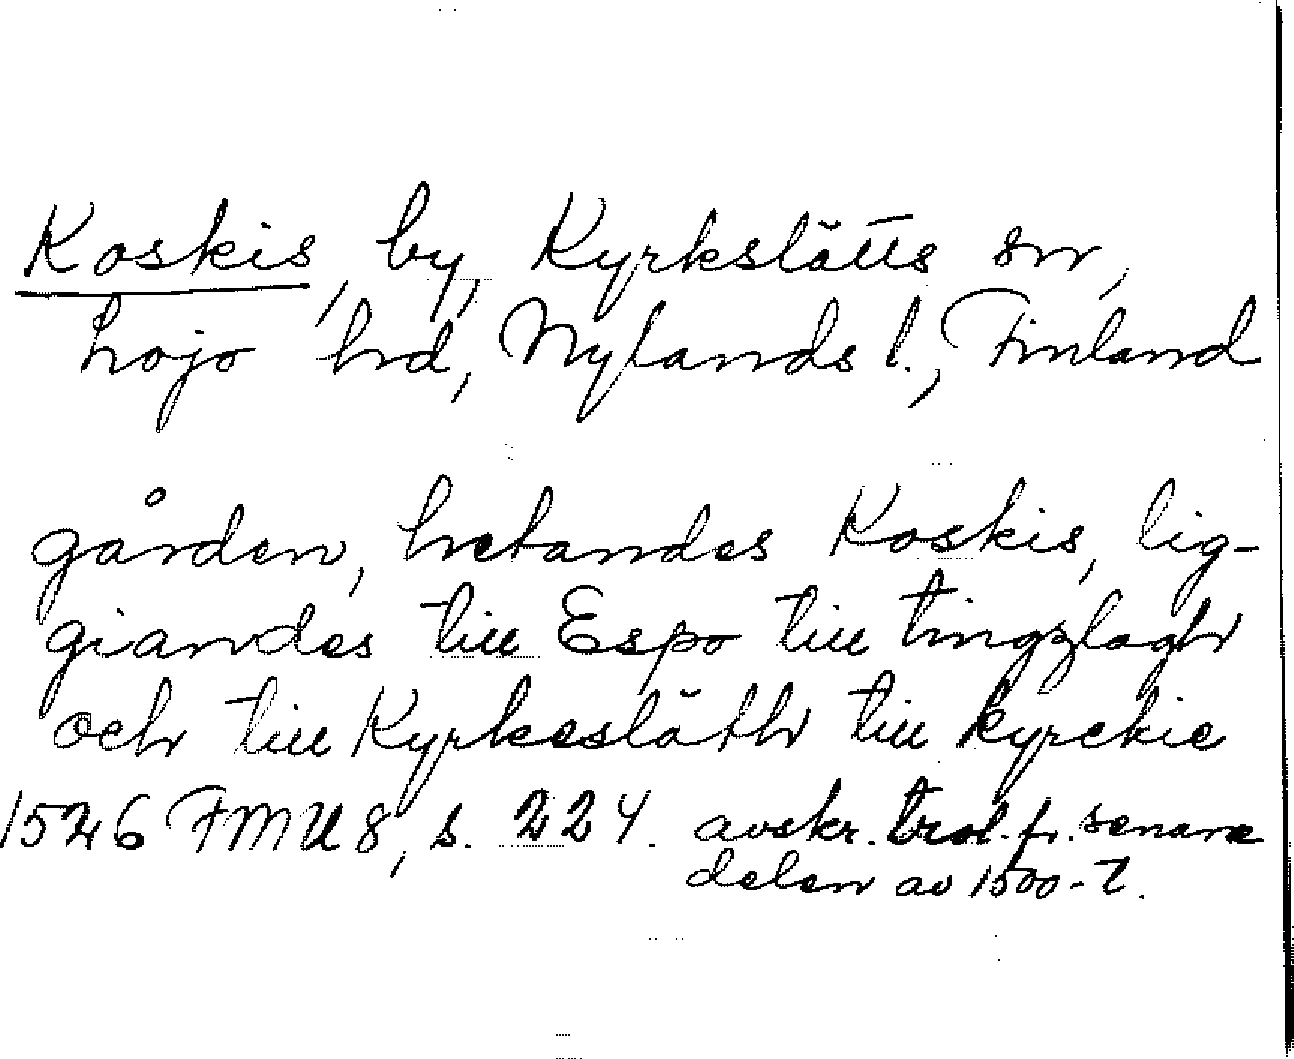 Koskis, by, Kyrkslätts sn,
Lojo hd, Nylands l., Finland
gården, hetandes Koskis, lig-
giandes till Espo till tingzlagh
och till Kyrkesläth till kyrckie
1526 FMU 8, s. 224. avskr. trol. fr. senare
delen av 1500-t.